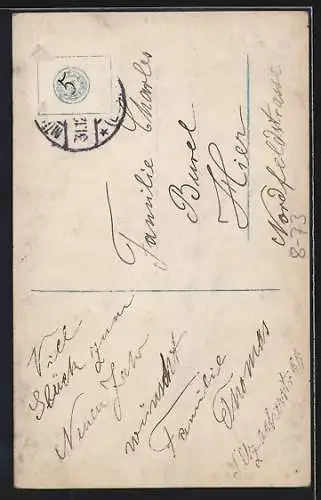 5
31.12
Familie Charles
Burel
Hier
Nordfeldstrasse
8-73
Viel
Glück zum
Neuen Jahr
wünscht
Familie
Thomas